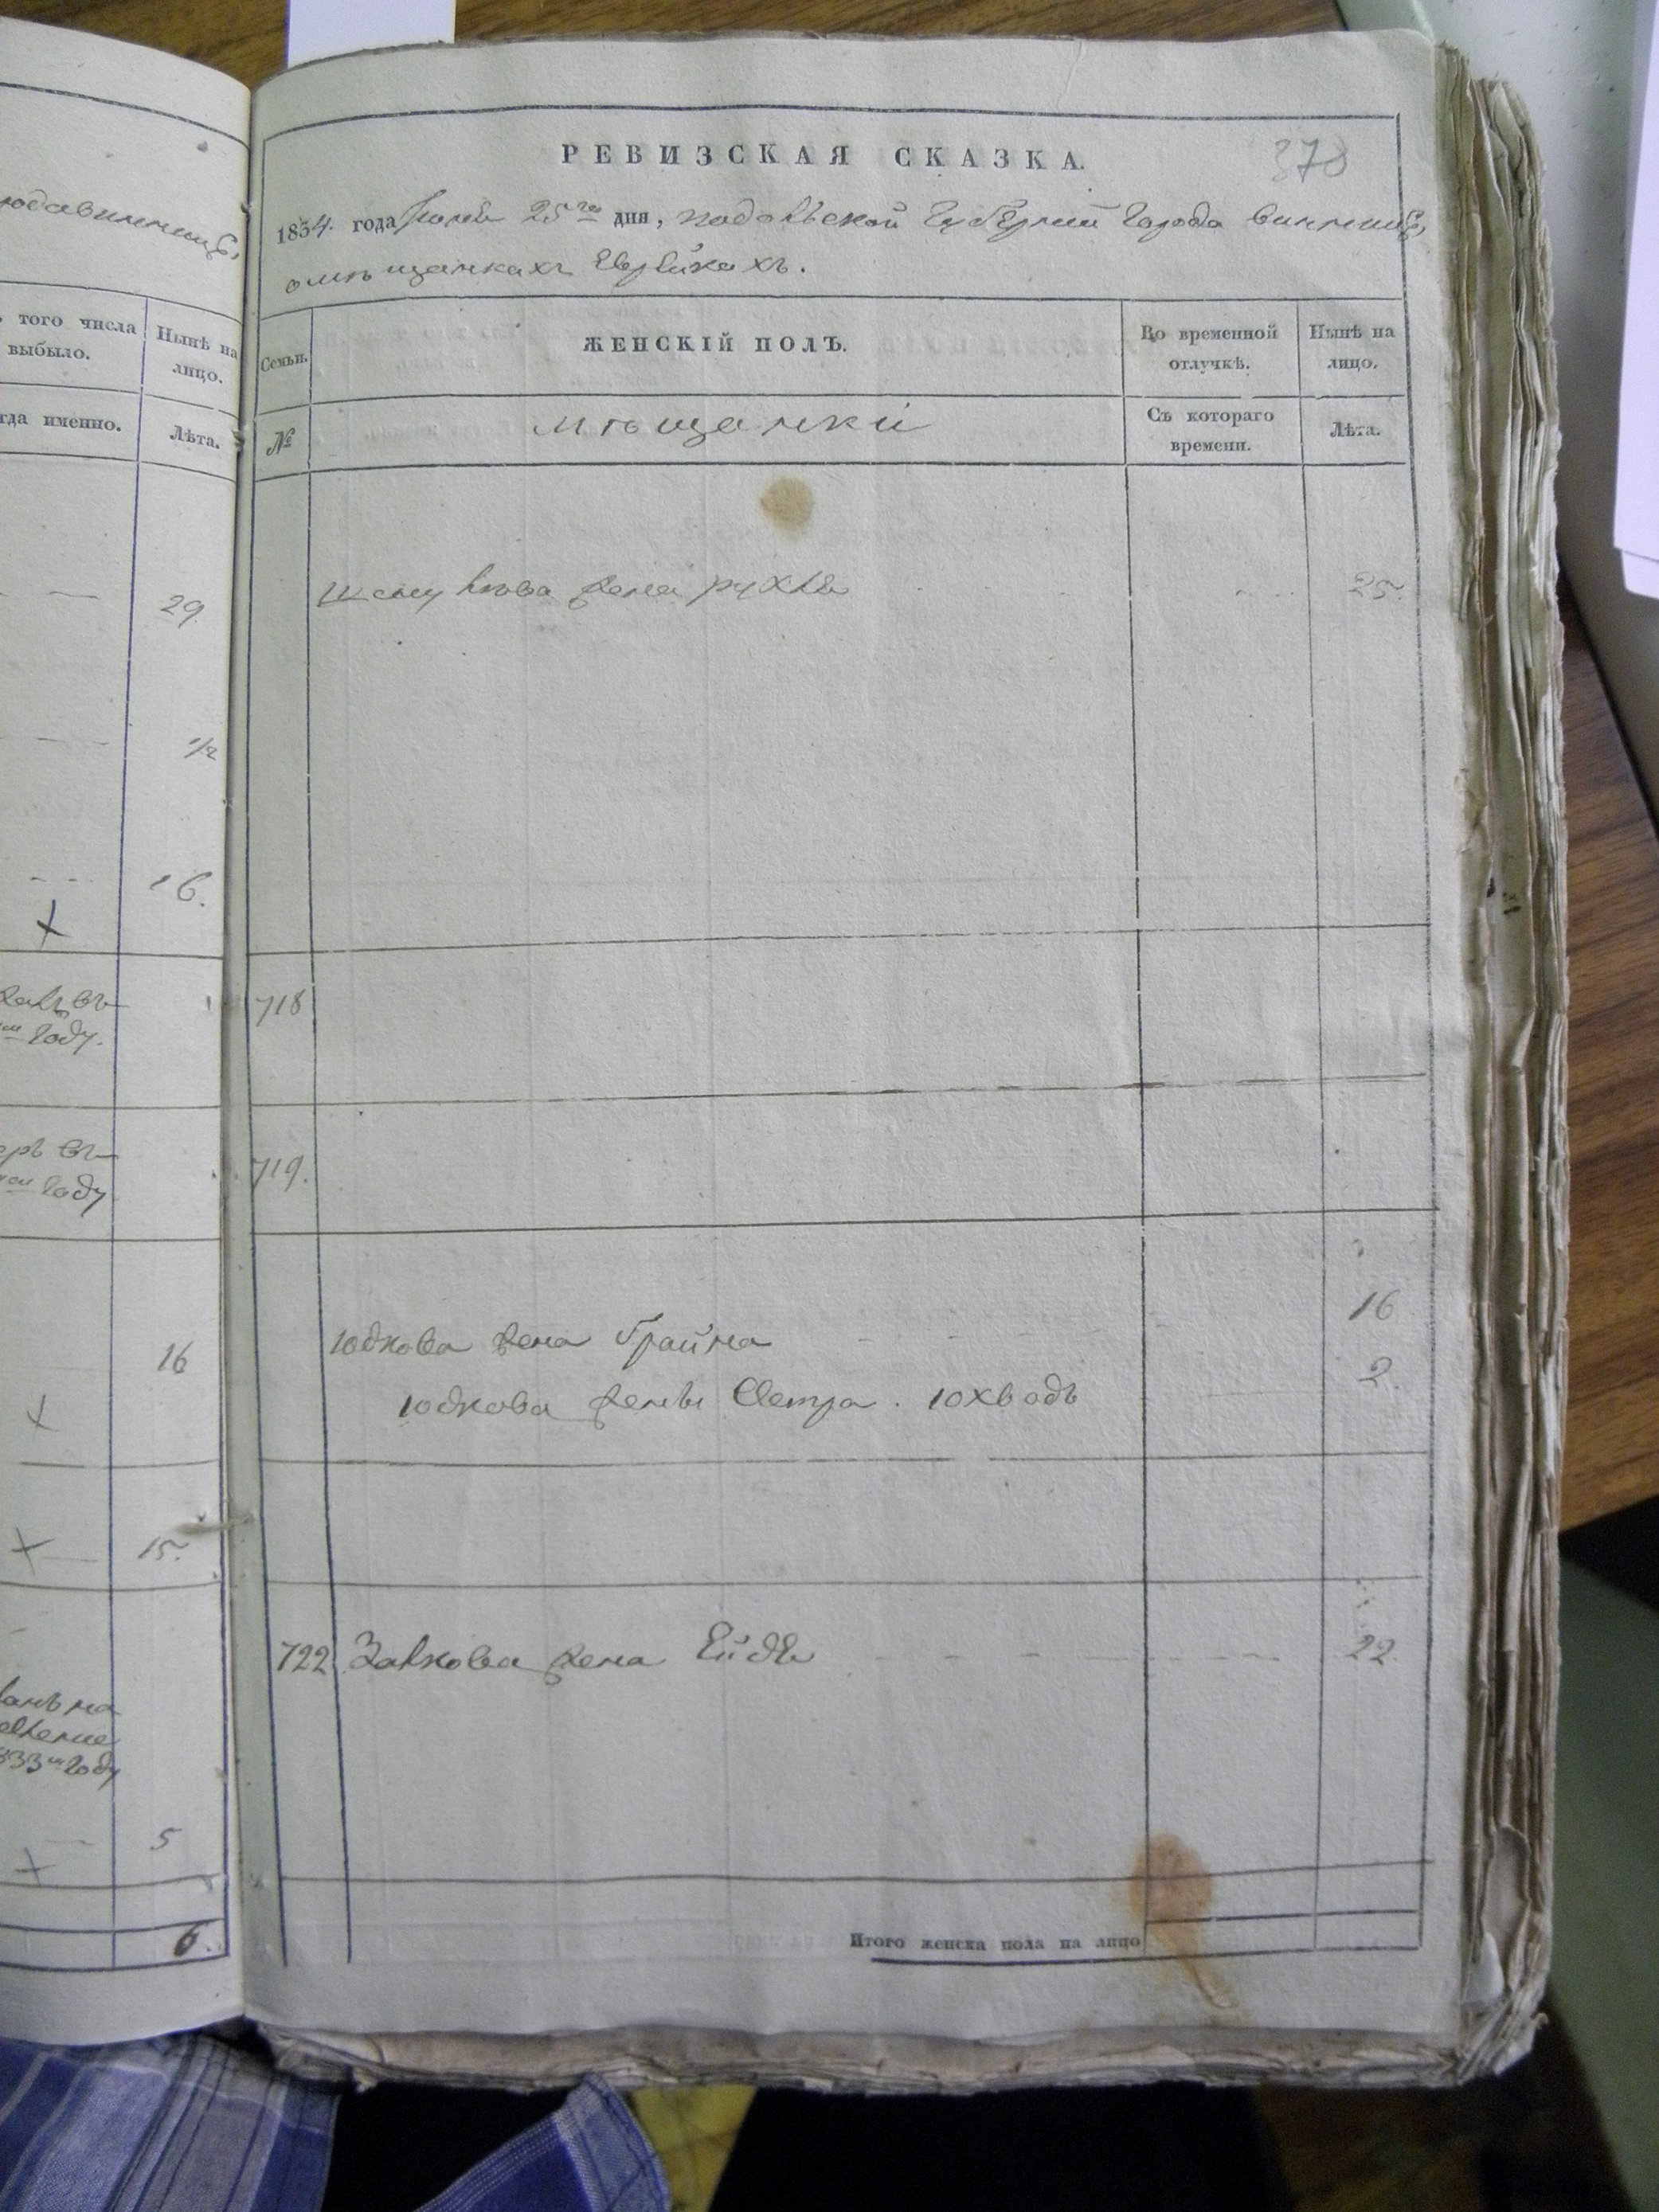 юдавинницѣ,
того числа
выбыло.
Нынѣ на
лицо.
гда именно.
Лѣта.
29.
1/2
16.
въ
году.
719.
въ
году
16
15.
на
333 году
5
6.
РЕВИЗСКАЯ СКАЗКА.
378
1834 года Іюня 25го дня, Подольской Губерніи Города Винницѣ,
о мѣщанкахъ Еврейкахъ.
Семьи.
ЖЕНСКІЙ ПОЛЪ.
Во временной
отлучкѣ.
Нынѣ на
лицо.
№
мѣщанки
Съ котораго
времени.
Лѣта.
жена Рухля 25.
718
719.
Юдкова жена Фрайма 16
Юдкова жены Сестра. Юхводъ 2.
722 Залкова жена Ейдя 22
Итого женска пола на лицо